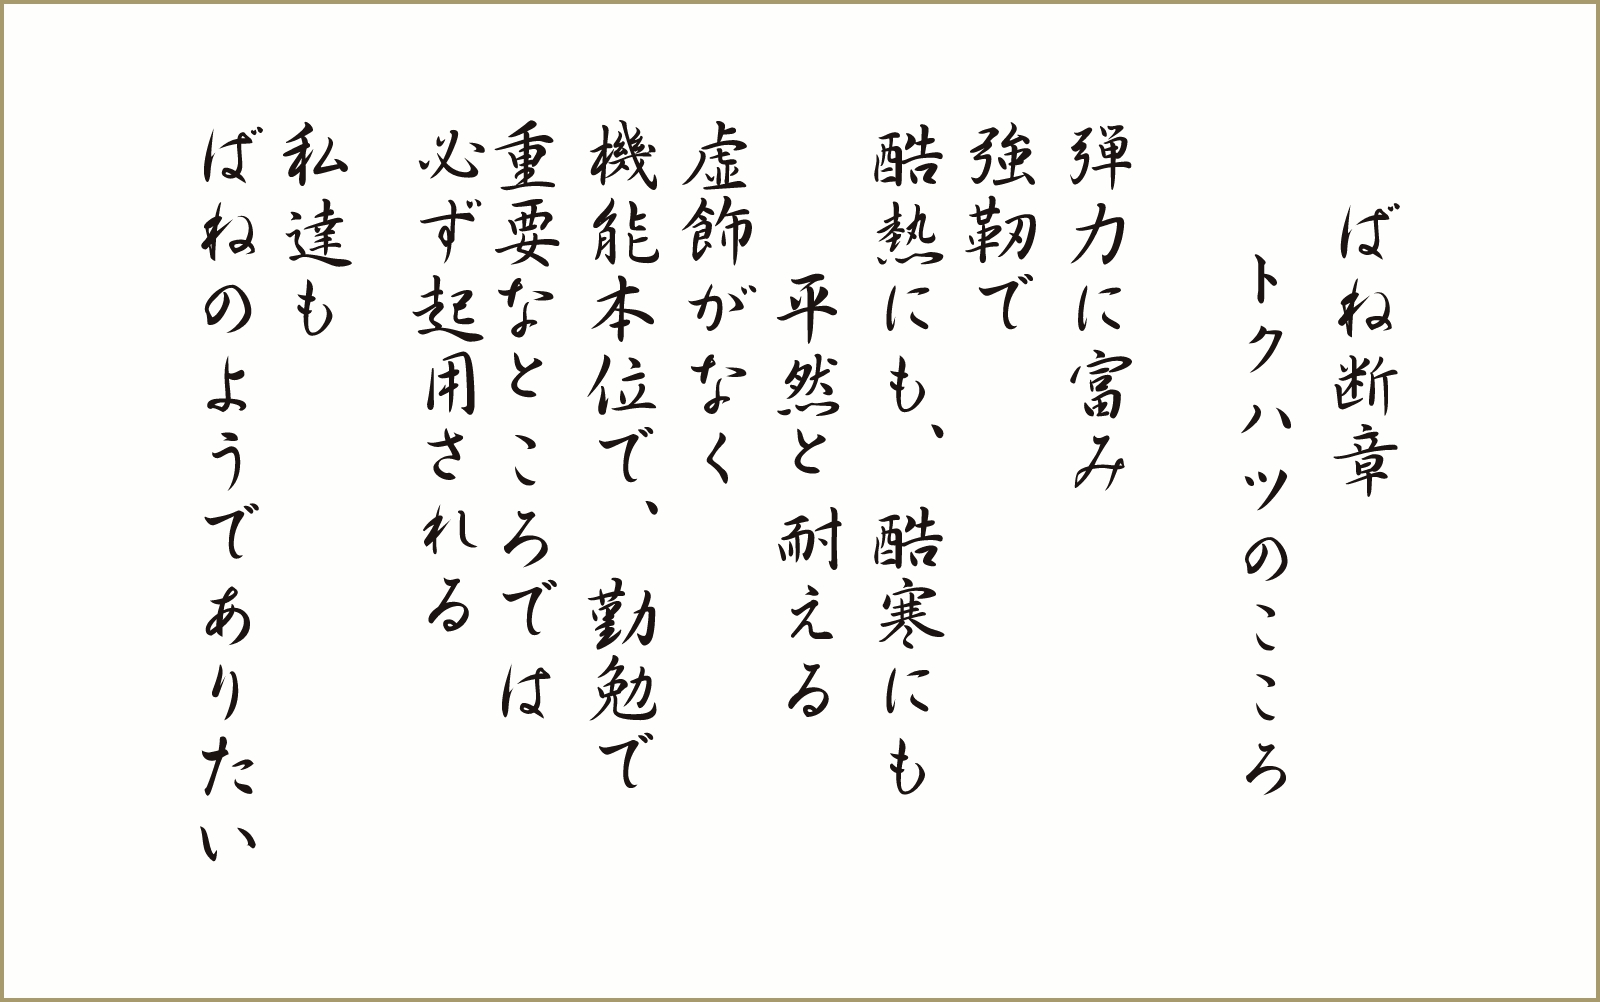 ばね断章
トクハツのこころ
弾力に富み
強靭で
酷熱にも、酷寒にも
平然と耐える
虚飾がなく
機能本位で、勤勉で
重要なところでは
必ず起用される
私達も
ばねのようでありたい